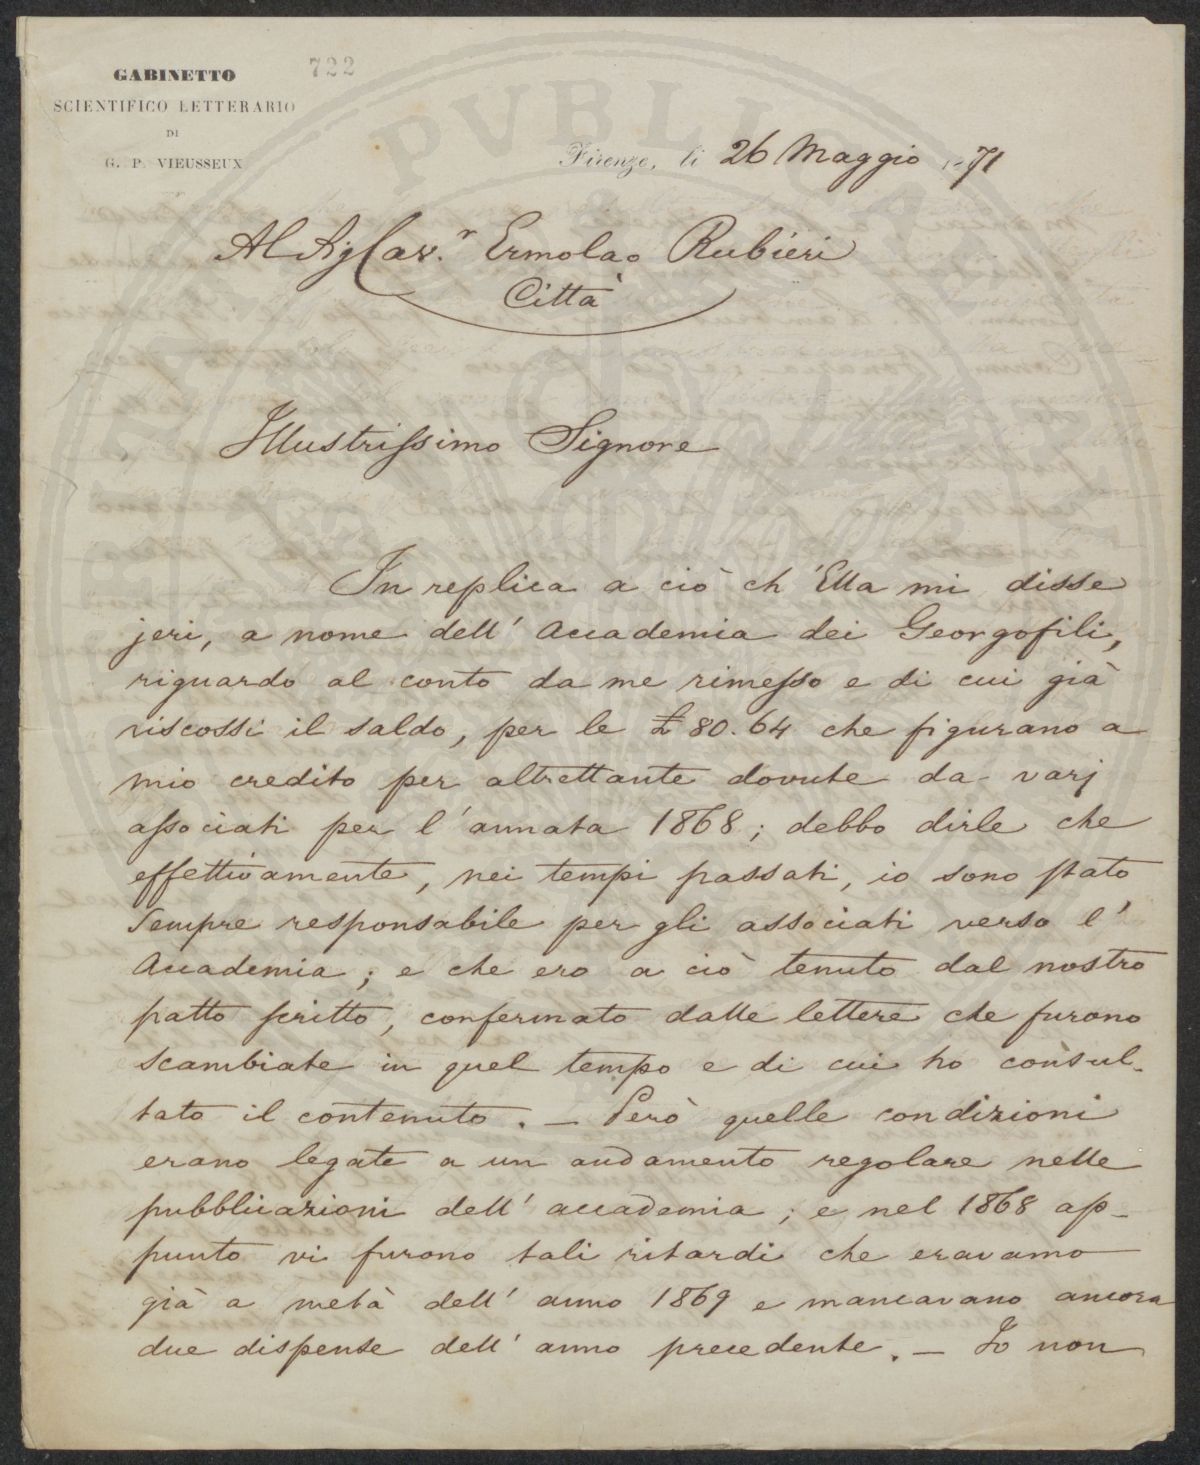 GABINETTO
SCIENTIFICO LETTERARIO
DI
G. P. VIEUSSEUX
722
Firenze, li 26 Maggio 1871
Al Sig Cav.r Ermolao Rubieri
Città
Illustrissimo Signore
In replica a ciò ch'Ella mi disse
jeri, a nome dell'Accademia dei Georgofili,
riguardo al conto da me rimesso e di cui già
riscossi il saldo, per le £ 80.64 che figurano a
mio credito per altrettante dovute da varj
associati per l'annata 1868; debbo dirle che
effettivamente, nei tempi passati, io sono stato
sempre responsabile per gli associati verso l'
Accademia; e che ero a ciò tenuto dal nostro
patto scritto, confermato dalle lettere che furono
scambiate in quel tempo e di cui ho consul-
tato il contenuto. — Però quelle condizioni
erano legate a un andamento regolare nelle
pubblicazioni dell'accademia; e nel 1868 ap-
punto vi furono tali ritardi che eravamo
già a metà dell'anno 1869 e mancavano ancora
due dispense dell'anno precedente. — Io non
PVBLICA